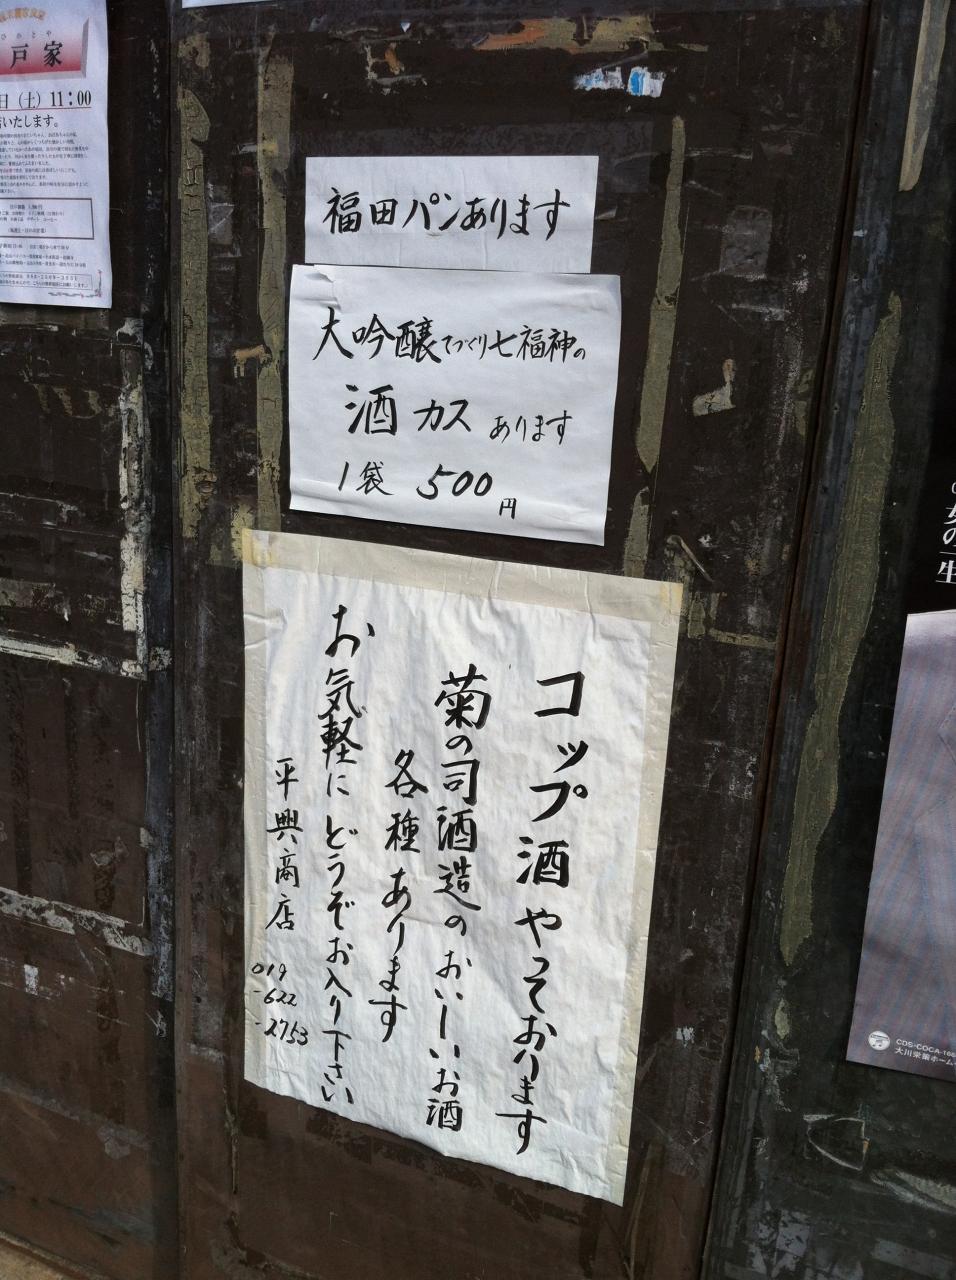 福田パンあります
大吟醸てづくり七福神の
酒カスあります
1袋 500円
コップ酒やっております
菊の司酒造のおいしいお酒
各種あります
お気軽にどうぞお入り下さい
平興商店
019
-622
-2753
戸家
日（土）11:00
いたします。
女の
生
CDS・COCA-166
大川栄策ホーム